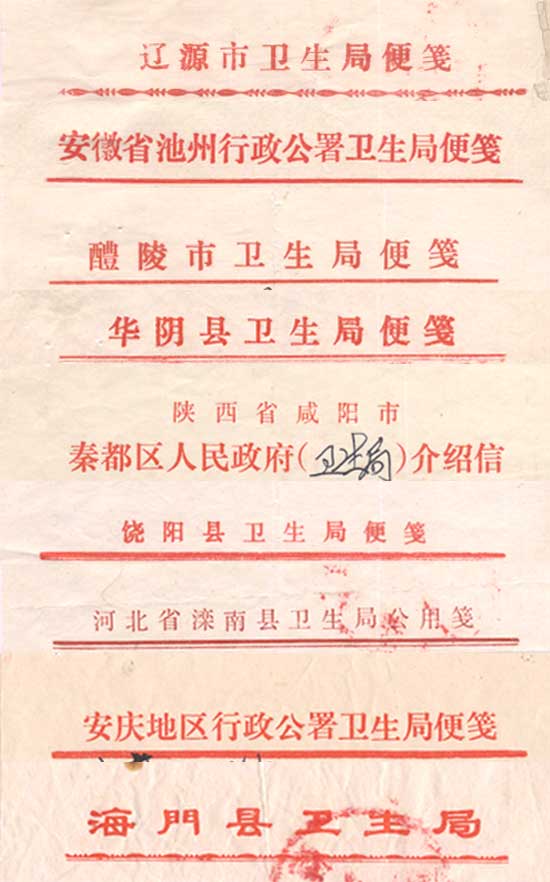 辽源市卫生局便笺
安徽省池州行政公署卫生局便笺
醴陵市卫生局便笺
华阴县卫生局便笺
陕西省咸阳市
秦都区人民政府(卫生局)介绍信
饶阳县卫生局便笺
河北省滦南县卫生局公用笺
安庆地区行政公署卫生局便笺
海門县卫生局